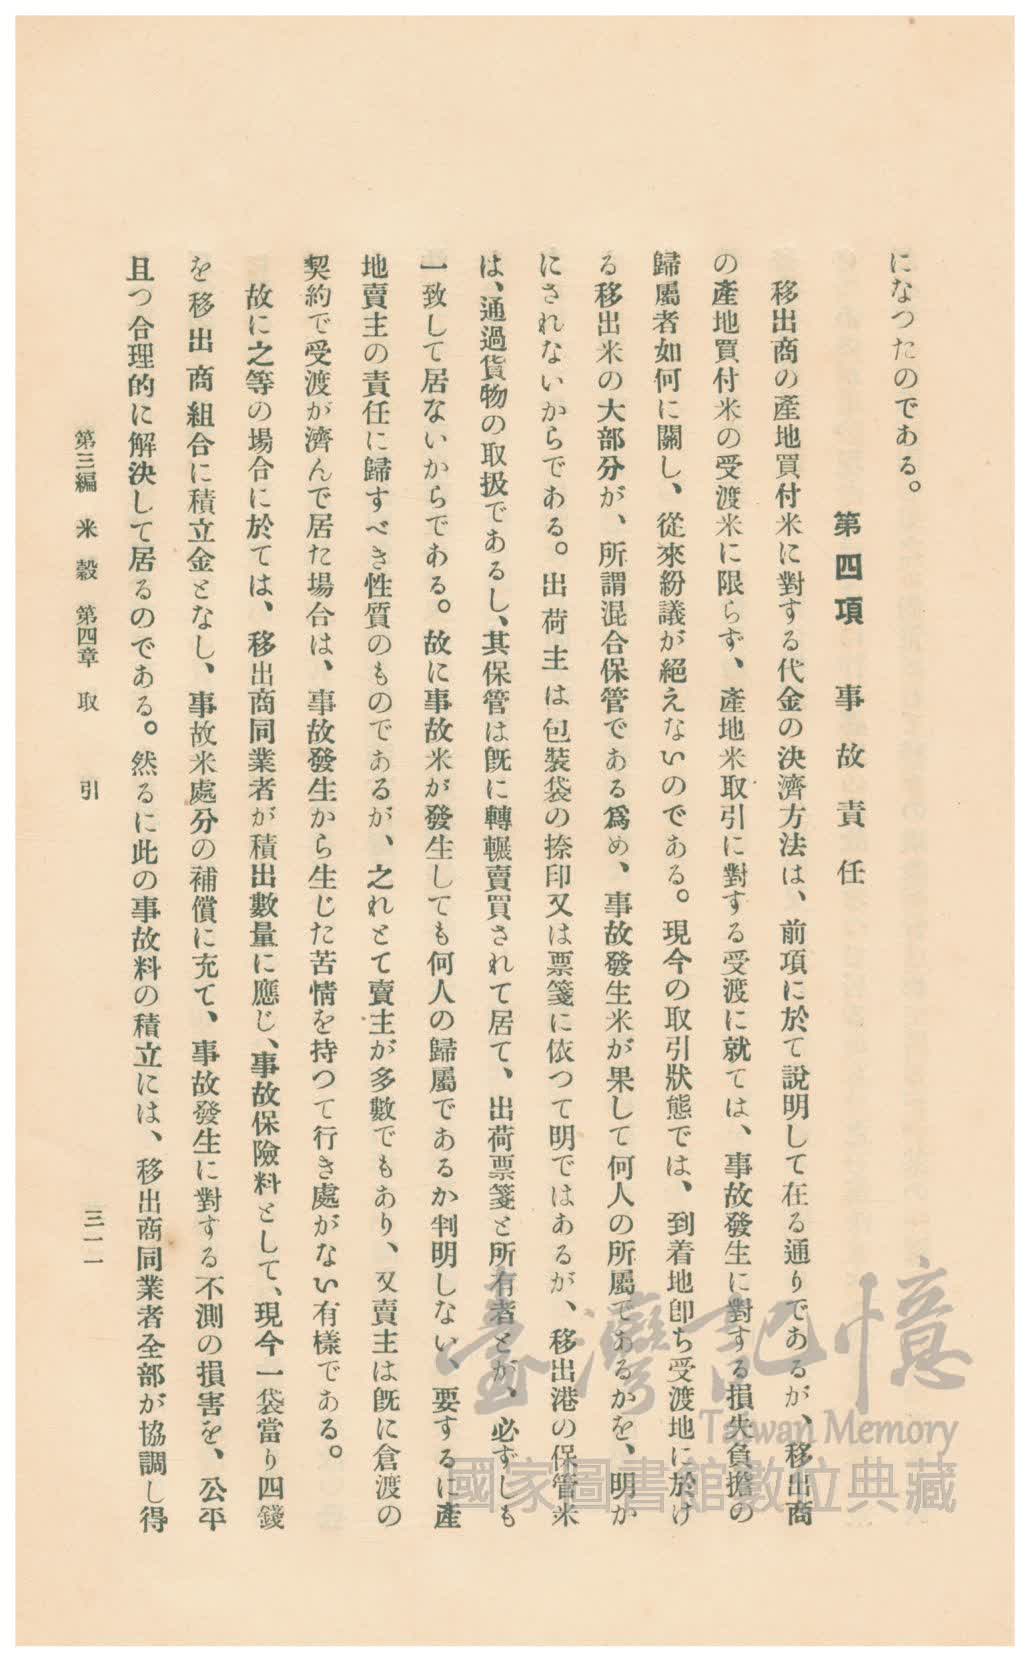 になつたのである。
第四項　事故責任
移出商の產地買付米に對する代金の決濟方法は、前項に於て說明して在る通りであるが、移出商
の產地買付米の受渡米に限らず、產地米取引に對する受渡に就ては、事故發生に對する損失負擔の
歸屬者如何に關し、從來紛議が絕えないのである。現今の取引狀態では、到着地卽ち受渡地に於け
る移出米の大部分が、所謂混合保管である爲め、事故發生米が果して何人の所屬であるかを、明か
にされないからである。出荷主は包裝袋の捺印又は票箋に依つて明ではあるが、移出港の保管米
は、通過貨物の取扱であるし、其保管は旣に轉輾賣買されて居て、出荷票箋と所有者とが、必ずしも
一致して居ないからである。故に事故米が發生しても何人の歸屬であるか判明しない、要するに產
地賣主の責任に歸すべき性質のものであるが、之れとて賣主が多數でもあり、又賣主は旣に倉渡の
契約で受渡が濟んで居た場合は、事故發生から生じた苦情を持つて行き處がない有樣である。
故に之等の場合に於ては、移出商同業者が積出數量に應じ、事故保險料として、現今一袋當り四錢
を移出商組合に積立金となし、事故米處分の補償に充て、事故發生に對する不測の損害を、公平
且つ合理的に解決して居るのである。然るに此の事故料の積立には、移出商同業者全部が協調し得
第三編　米穀　第四章　取引
三一一
臺灣記憶
Taiwan Memory
國家圖書館數位典藏